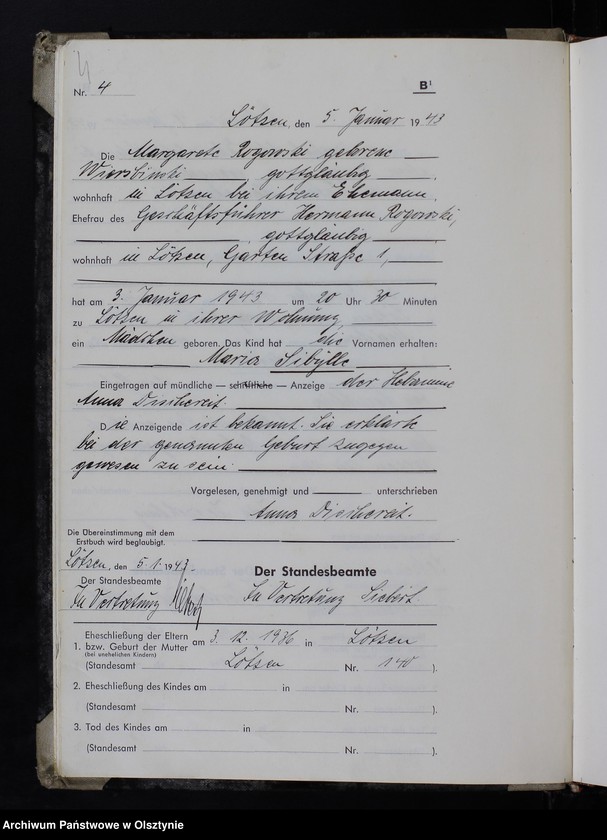 4
Nr. 4
B¹
Lötzen, den 5. Januar 1943
Die Margarete Rogowski geborene
Wiersbinski gottgläubig
wohnhaft in Lötzen bei ihrem Ehemann,
Ehefrau des Geschäftsführer Hermann Rogowski,
gottgläubig
wohnhaft in Lötzen, Garten Straße 1,
hat am 3. Januar 1943 um 20 Uhr 30 Minuten
zu Lötzen in ihrer Wohnung
ein Mädchen geboren. Das Kind hat die Vornamen erhalten:
Maria Sibylle
Eingetragen auf mündliche — schriftliche — Anzeige der Hebamme
Anna Dischereit.
Die Anzeigende ist bekannt. Sie erklärte
bei der genannten Geburt zugegen
gewesen zu sein.
Vorgelesen, genehmigt und unterschrieben
Anna Dischereit.
Die Übereinstimmung mit dem
Erstbuch wird beglaubigt.
Lötzen, den 5.1.1943.
Der Standesbeamte
Der Standesbeamte
In Vertretung Siebert
In Vertretung Siebert.
Eheschließung der Eltern am 3. 12. 1936 in Lötzen
1. bzw. Geburt der Mutter
(bei unehelichen Kindern)
(Standesamt Lötzen Nr. 140 ).
2. Eheschließung des Kindes am in
(Standesamt Nr. ).
3. Tod des Kindes am in
(Standesamt Nr. ).
Archiwum Państwowe w Olsztynie